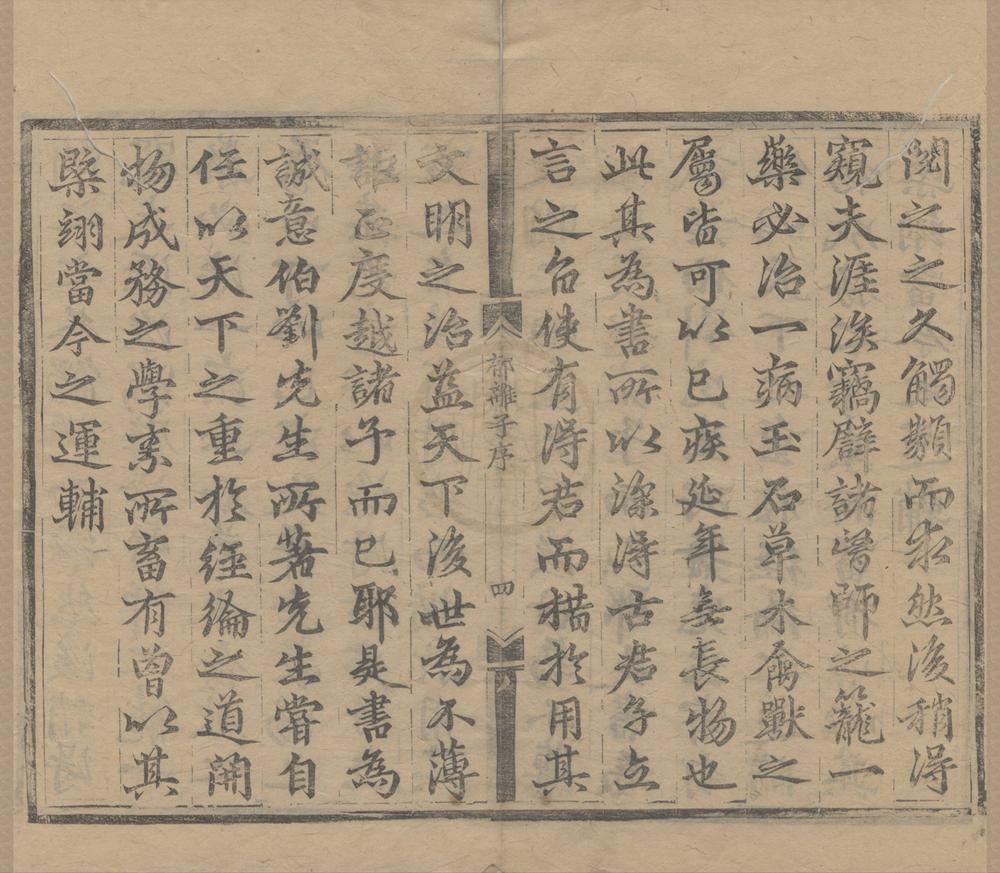 閱之之久觸類而求然後稍得
窺夫涯涘竊譬諸醫師之籠一
藥必治一病玉石草木禽獸之
屬皆可以已疾延年無長物也
此其為書所以深得古君子立
言之旨使有得君而措於用其
郁離子序
四
文明之治益天下後世為不薄
詎止度越諸子而已耶是書為
誠意伯劉先生所著先生嘗自
任以天下之重於經綸之道開
物成務之學素所畜有曾以其
槩翊當今之運輔